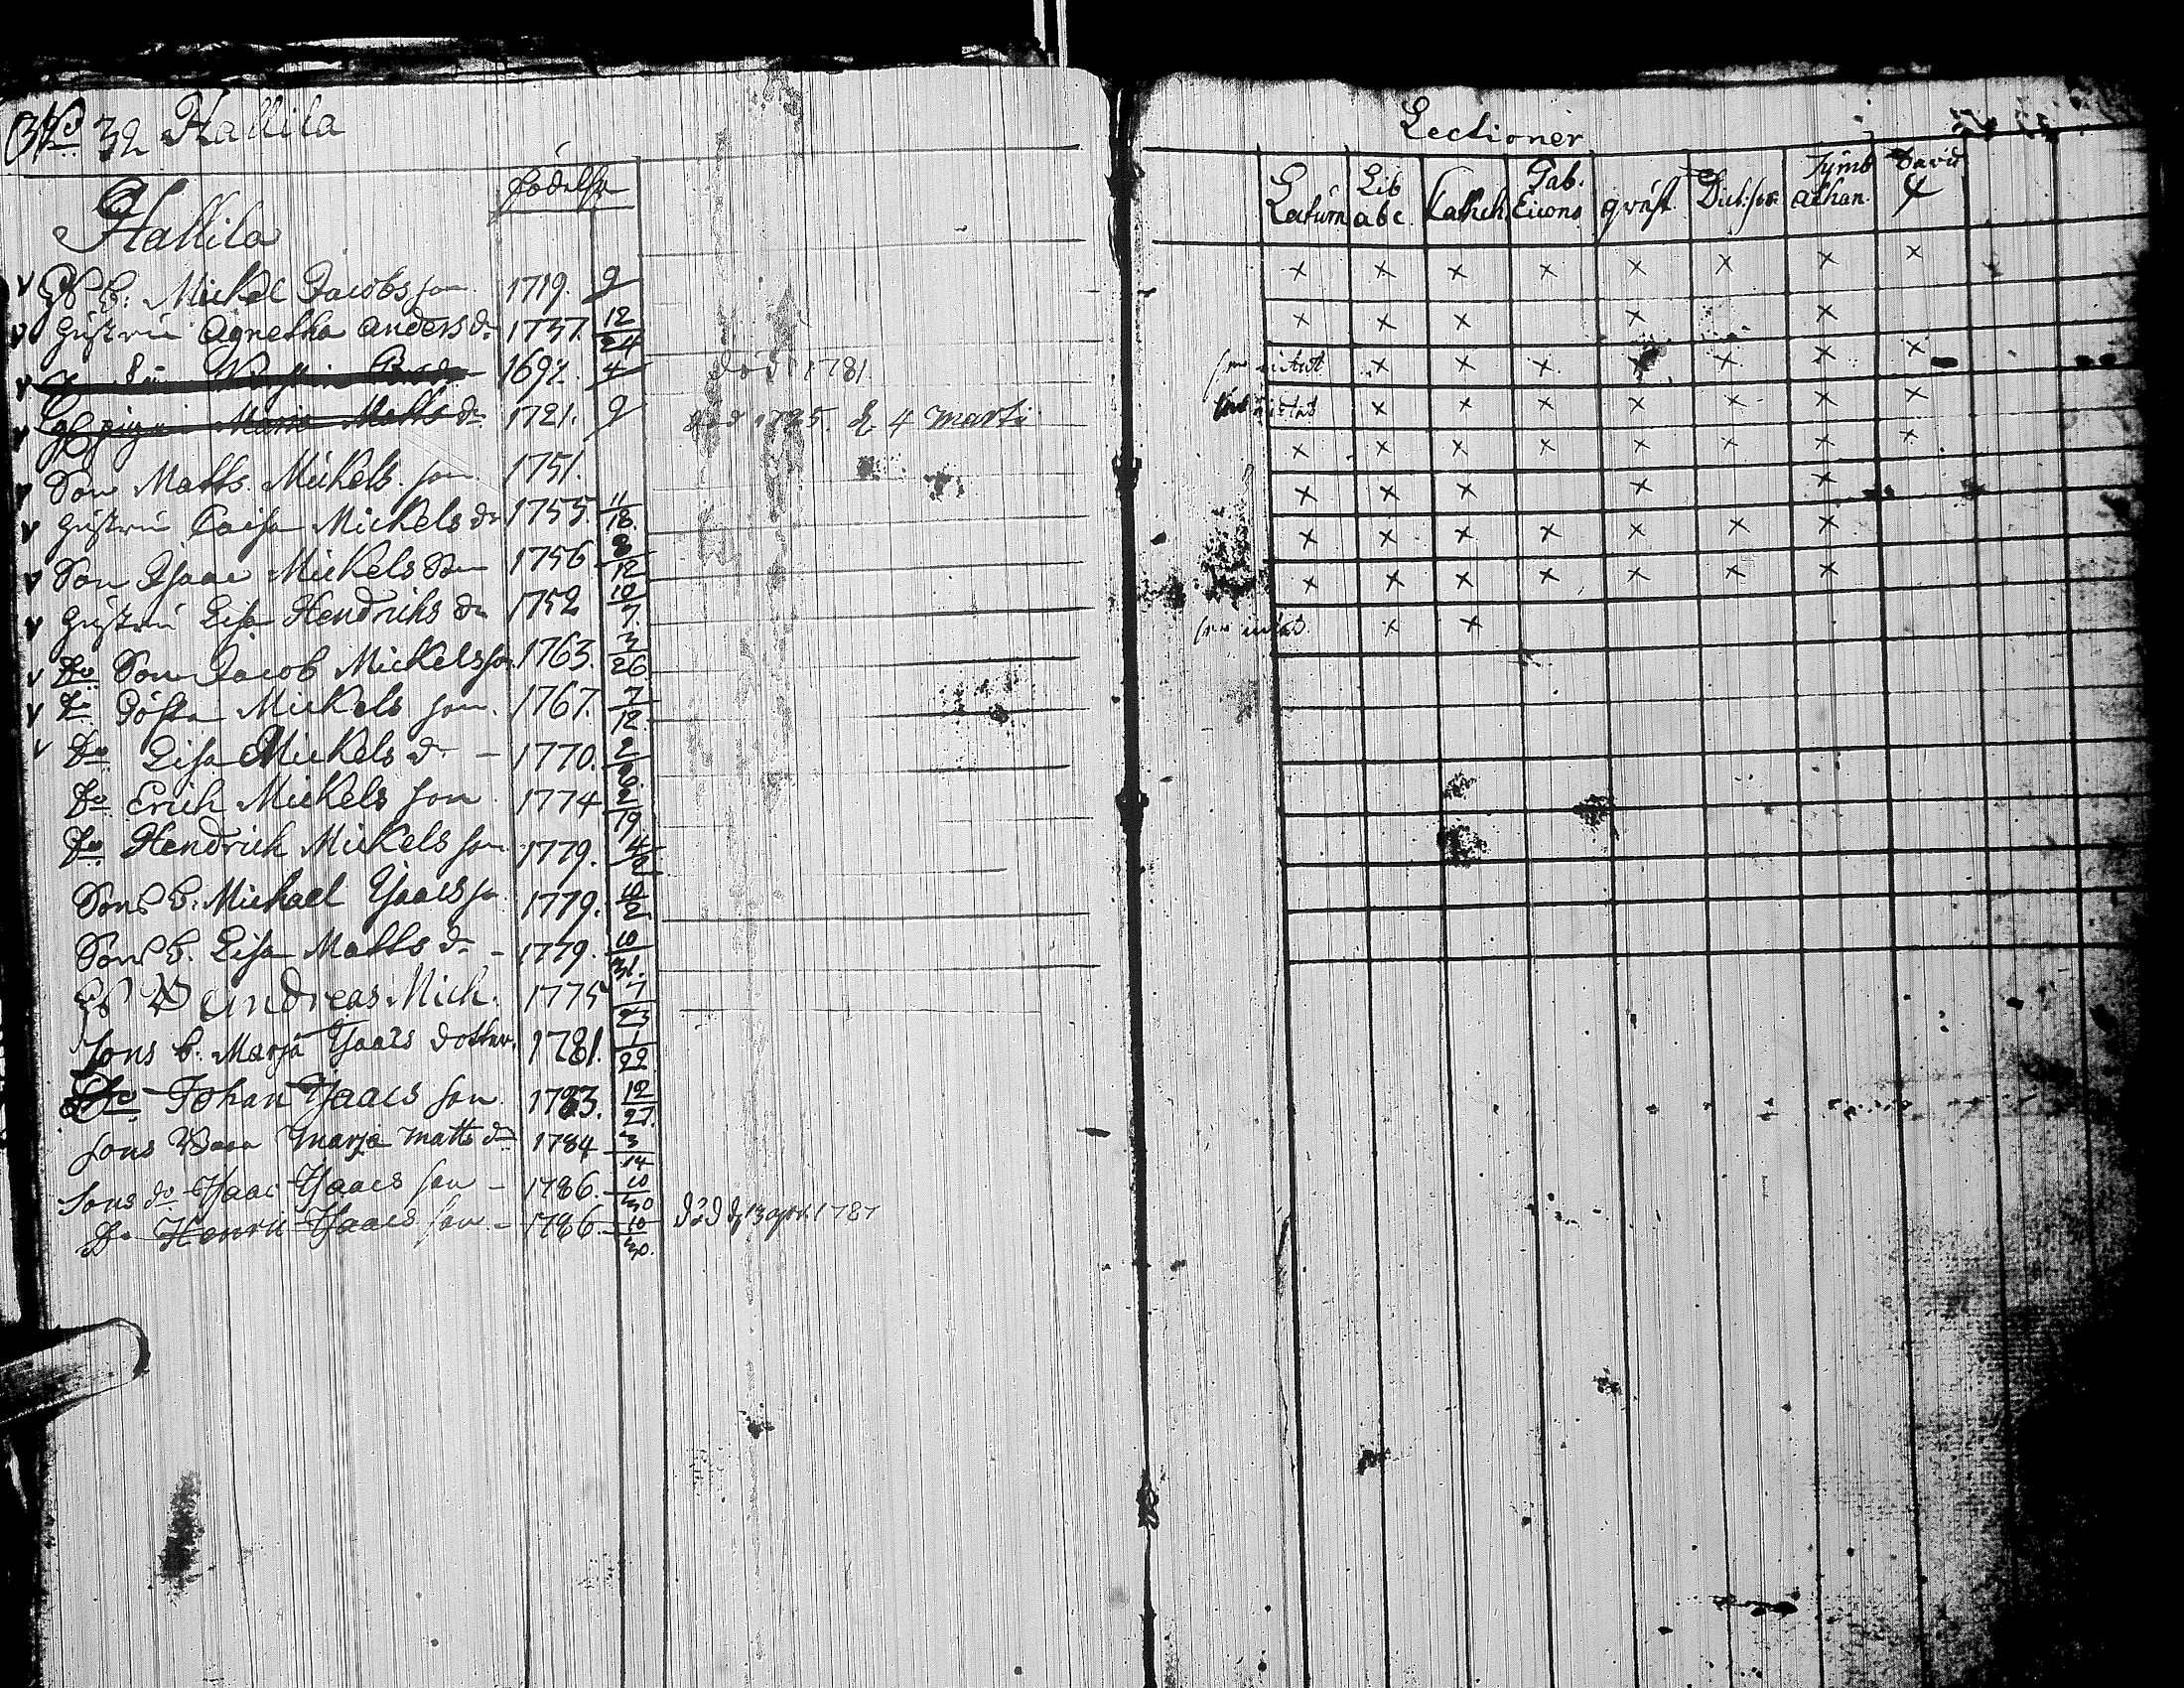 No 32 Hallila
Födelse
Hallila
B. Mickel Jacobsson 1719. 9
hustru Agnetha Andersdr 1737. 12/24
1697. 4 död 1781
Maria Mattsdr 1721. 9 död 1785. d. 4 Marti
Son Matts Mickelsson 1751.
hustru Caisa Mickelsdr 1755. 11/18.
Son Isaac Mickelsson 1756 8/12
hustru Lisa Hendrichsdr 1752 10/7.
Do Son Jacob Mickelsson 1763. 3/26
Do Gösta Mickelsson. 1767. 7/12.
Do Lisa Mickelsdr - 1770. 2
Do Erich Mickelsson 1774 2/19
Do Hendrich Mickelsson 1779. 4/2
Sons B. Michael Isaacsson 1779. 10/2.
Sons B. Lisa Mattsdr - 1779. 10/31.
Andreas Mich. 1775 7/23
Sons b. Marja Isaacs dotter. 1781. 1/22
Do Johan Isaacsson 1783. 12/27.
Sons Barn Marja Mattsdr 1784 3/14
Sons do Isaac Isaacsson - 1786. 10/30
Do Henric Isaacsson - 1786. 10/30. död d 13 apri. 1787
Lectioner
Lib abc Cathech Tab. Symb athan. David
x x x x x x x x
x x x x x
x x x x x x x
x x x x x x x
x x x x x x x x
x x x x x
x x x x x x x
x x x x x x x
x x